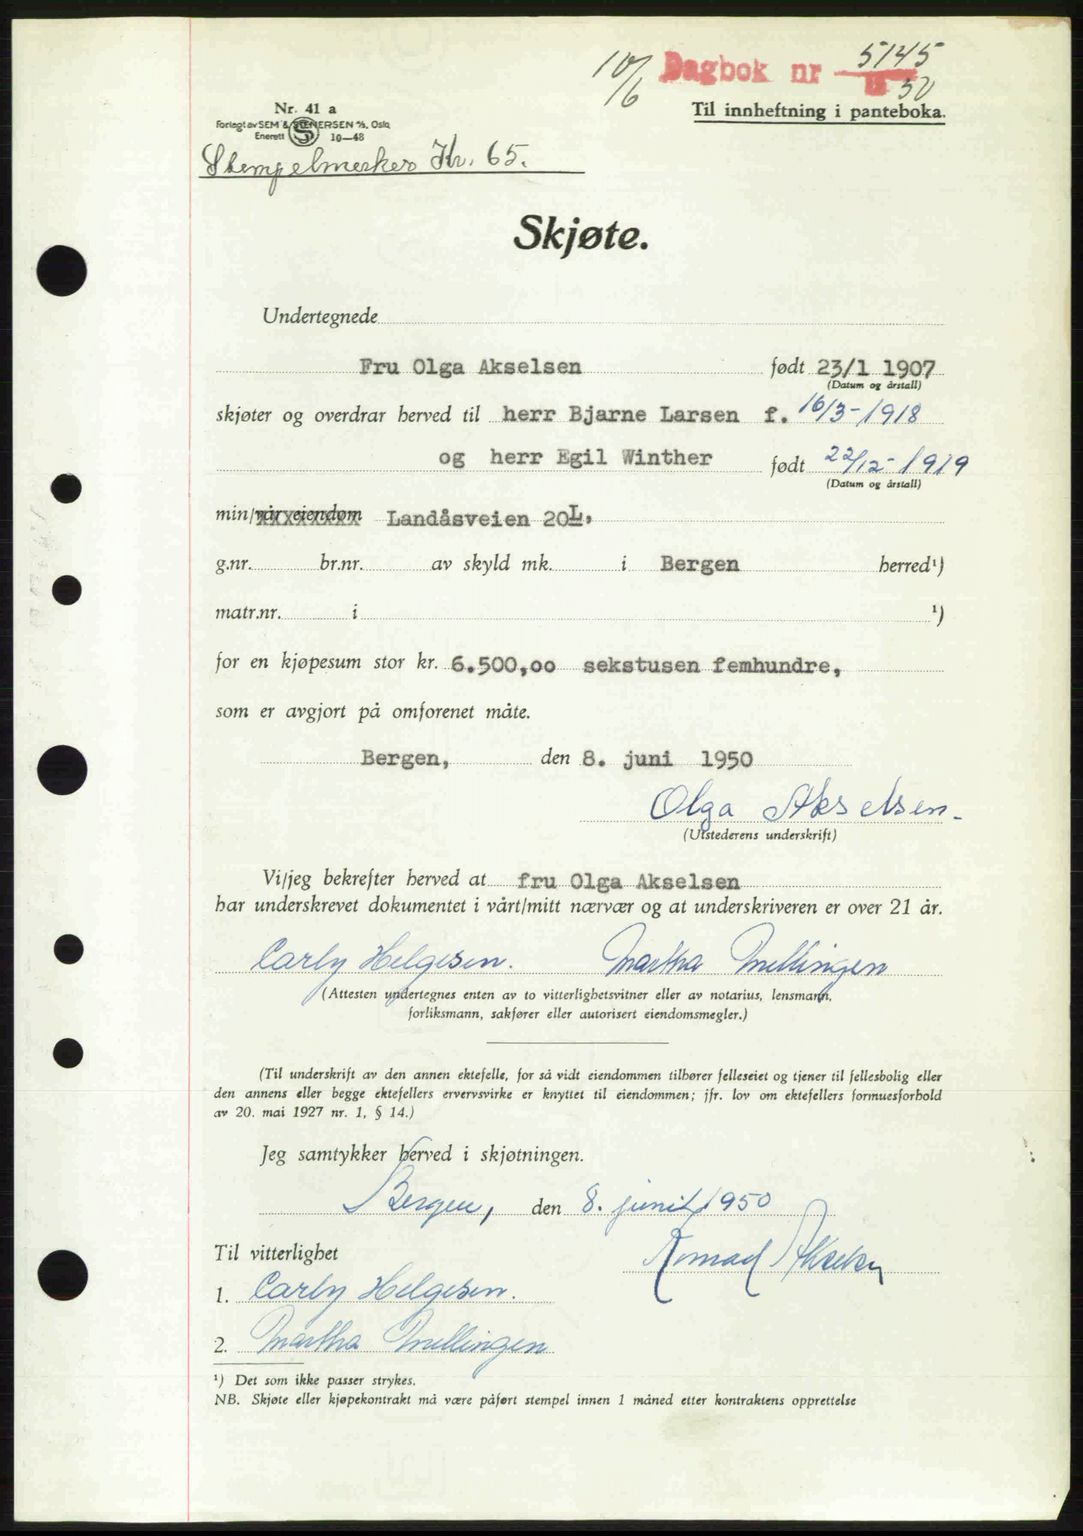 10/6 Dagbok nr 5145
19 50
Til innheftning i panteboka.
Nr. 41 a
Forlagt av SEM & STENERSEN A/S, Oslo
Enerett S 10—48
Stempelmerker Kr. 65.
Skjøte.
Undertegnede
Fru Olga Akselsen født 23/1 1907
(Datum og årstall)
skjøter og overdrar herved til herr Bjarne Larsen f. 16/3-1918
og herr Egil Winther født 22/12-1919
(Datum og årstall)
min/vår eiendom Landåsveien 20L,
g.nr. br.nr. av skyld mk. i Bergen herred¹)
matr.nr. i ¹)
for en kjøpesum stor kr. 6.500,oo sekstusen femhundre,
som er avgjort på omforenet måte.
Bergen, den 8. juni 1950
Olga Akselsen.
(Utstederens underskrift)
Vi/jeg bekrefter herved at fru Olga Akselsen
har underskrevet dokumentet i vårt/mitt nærvær og at underskriveren er over 21 år.
Carly Helgesen. Martha Mellingen
(Attesten undertegnes enten av to vitterlighetsvitner eller av notarius, lensmann,
forliksmann, sakfører eller autorisert eiendomsmegler.)
(Til underskrift av den annen ektefelle, for så vidt eiendommen tilhører felleseiet og tjener til fellesbolig eller
den annens eller begge ektefellers ervervsvirke er knyttet til eiendommen; jfr. lov om ektefellers formuesforhold
av 20. mai 1927 nr. 1, § 14.)
Jeg samtykker herved i skjøtningen.
Bergen, den 8. juni 1950
Til vitterlighet Konrad Akselsen
1. Carly Helgesen.
2. Martha Mellingen
¹) Det som ikke passer strykes.
NB. Skjøte eller kjøpekontrakt må være påført stempel innen 1 måned etter kontraktens opprettelse